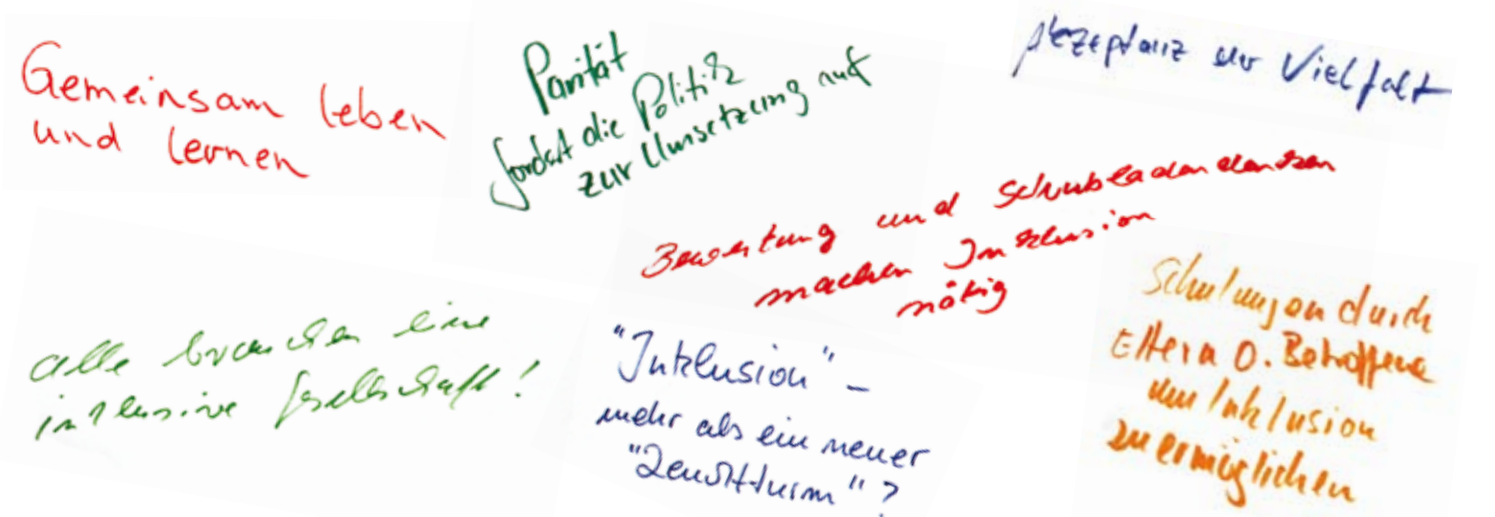 Gemeinsam leben
und lernen
Parität
fordert die Politik
zur Umsetzung auf
Akzeptanz der Vielfalt
Bewertung und Schubladendenken
machen Inklusion
nötig
alle brauchen eine
inklusive Gesellschaft!
"Inklusion" –
mehr als ein neuer
"Leuchtturm"?
Schulungen durch
Eltern o. Betroffene
um Inklusion
zu ermöglichen